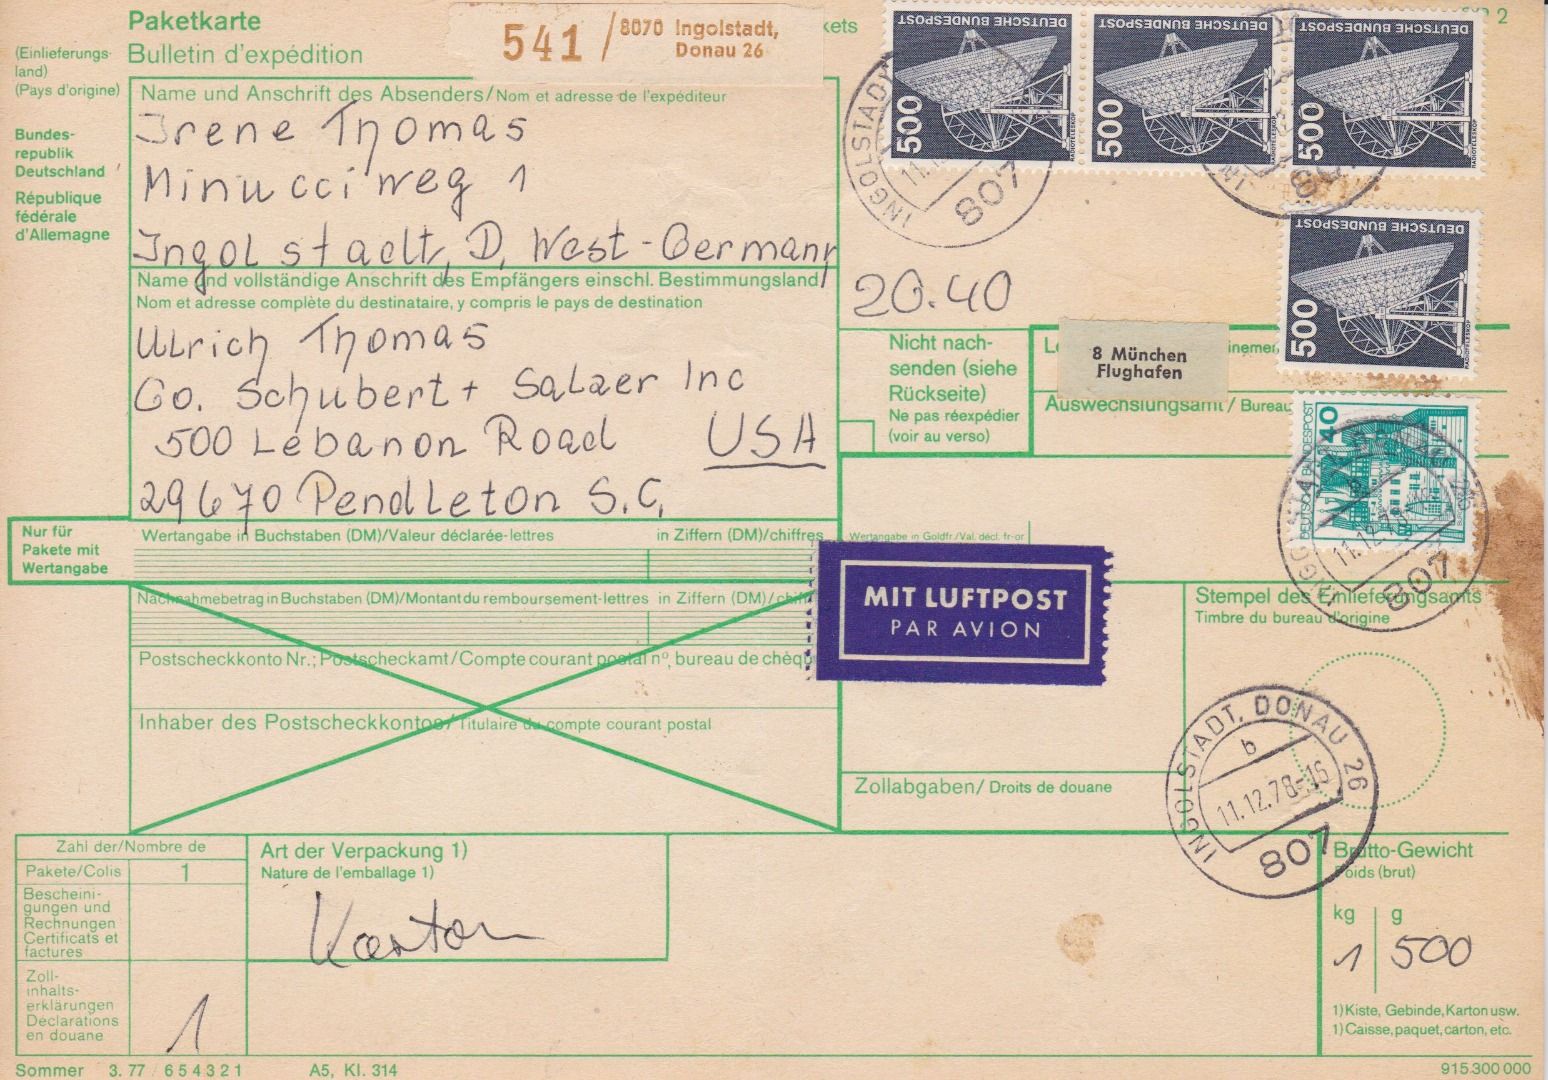 Paketkarte
Bulletin d'expédition
(Einlieferungs-
land)
(Pays d'origine)
Bundes-
republik
Deutschland
République
fédérale
d'Allemagne
541 / 8070 Ingolstadt,
Donau 26
kets
2
Name und Anschrift des Absenders/Nom et adresse de l'expéditeur
Irene Thomas
Minucciweg 1
Ingolstadt, D, West-Germany
Name und vollständige Anschrift des Empfängers einschl. Bestimmungsland/
Nom et adresse complète du destinataire, y compris le pays de destination
Ulrich Thomas
Co. Schubert + Salzer Inc
500 Lebanon Road USA
29670 Pendleton S.C.
DEUTSCHE BUNDESPOST
500
RADIOTELESKOP
DEUTSCHE BUNDESPOST
500
RADIOTELESKOP
DEUTSCHE BUNDESPOST
500
RADIOTELESKOP
INGOLSTADT
11.1
807
20.40
DEUTSCHE BUNDESPOST
500
RADIOTELESKOP
Nicht nach-
senden (siehe
Rückseite)
Ne pas réexpédier
(voir au verso)
8 München
Flughafen
Auswechslungsamt / Bureau
DEUTSCHE BUNDESPOST
40
11.12.78
807
Nur für
Pakete mit
Wertangabe
Wertangabe in Buchstaben (DM)/Valeur déclarée-lettres in Ziffern (DM)/chiffres
Wertangabe in Goldfr./Val. décl. fr-or
Nachnahmebetrag in Buchstaben (DM)/Montant du remboursement-lettres in Ziffern (DM)/chif
MIT LUFTPOST
PAR AVION
Stempel des Einlieferungsamts
Timbre du bureau d'origine
Postscheckkonto Nr.; Postscheckamt/Compte courant postal nº, bureau de chèqu
Inhaber des Postscheckkontos/Titulaire du compte courant postal
Zollabgaben/Droits de douane
INGOLSTADT, DONAU 26
b
11.12.78-16
807
Zahl der/Nombre de
Pakete/Colis 1
Bescheini-
gungen und
Rechnungen
Certificats et
factures
Zoll-
inhalts-
erklärungen
Déclarations
en douane
1
Art der Verpackung 1)
Nature de l'emballage 1)
Karton
Brutto-Gewicht
Poids (brut)
kg g
1 500
1) Kiste, Gebinde, Karton usw.
1) Caisse, paquet, carton, etc.
Sommer 3. 77 654321 A5, Kl. 314
915 300 000